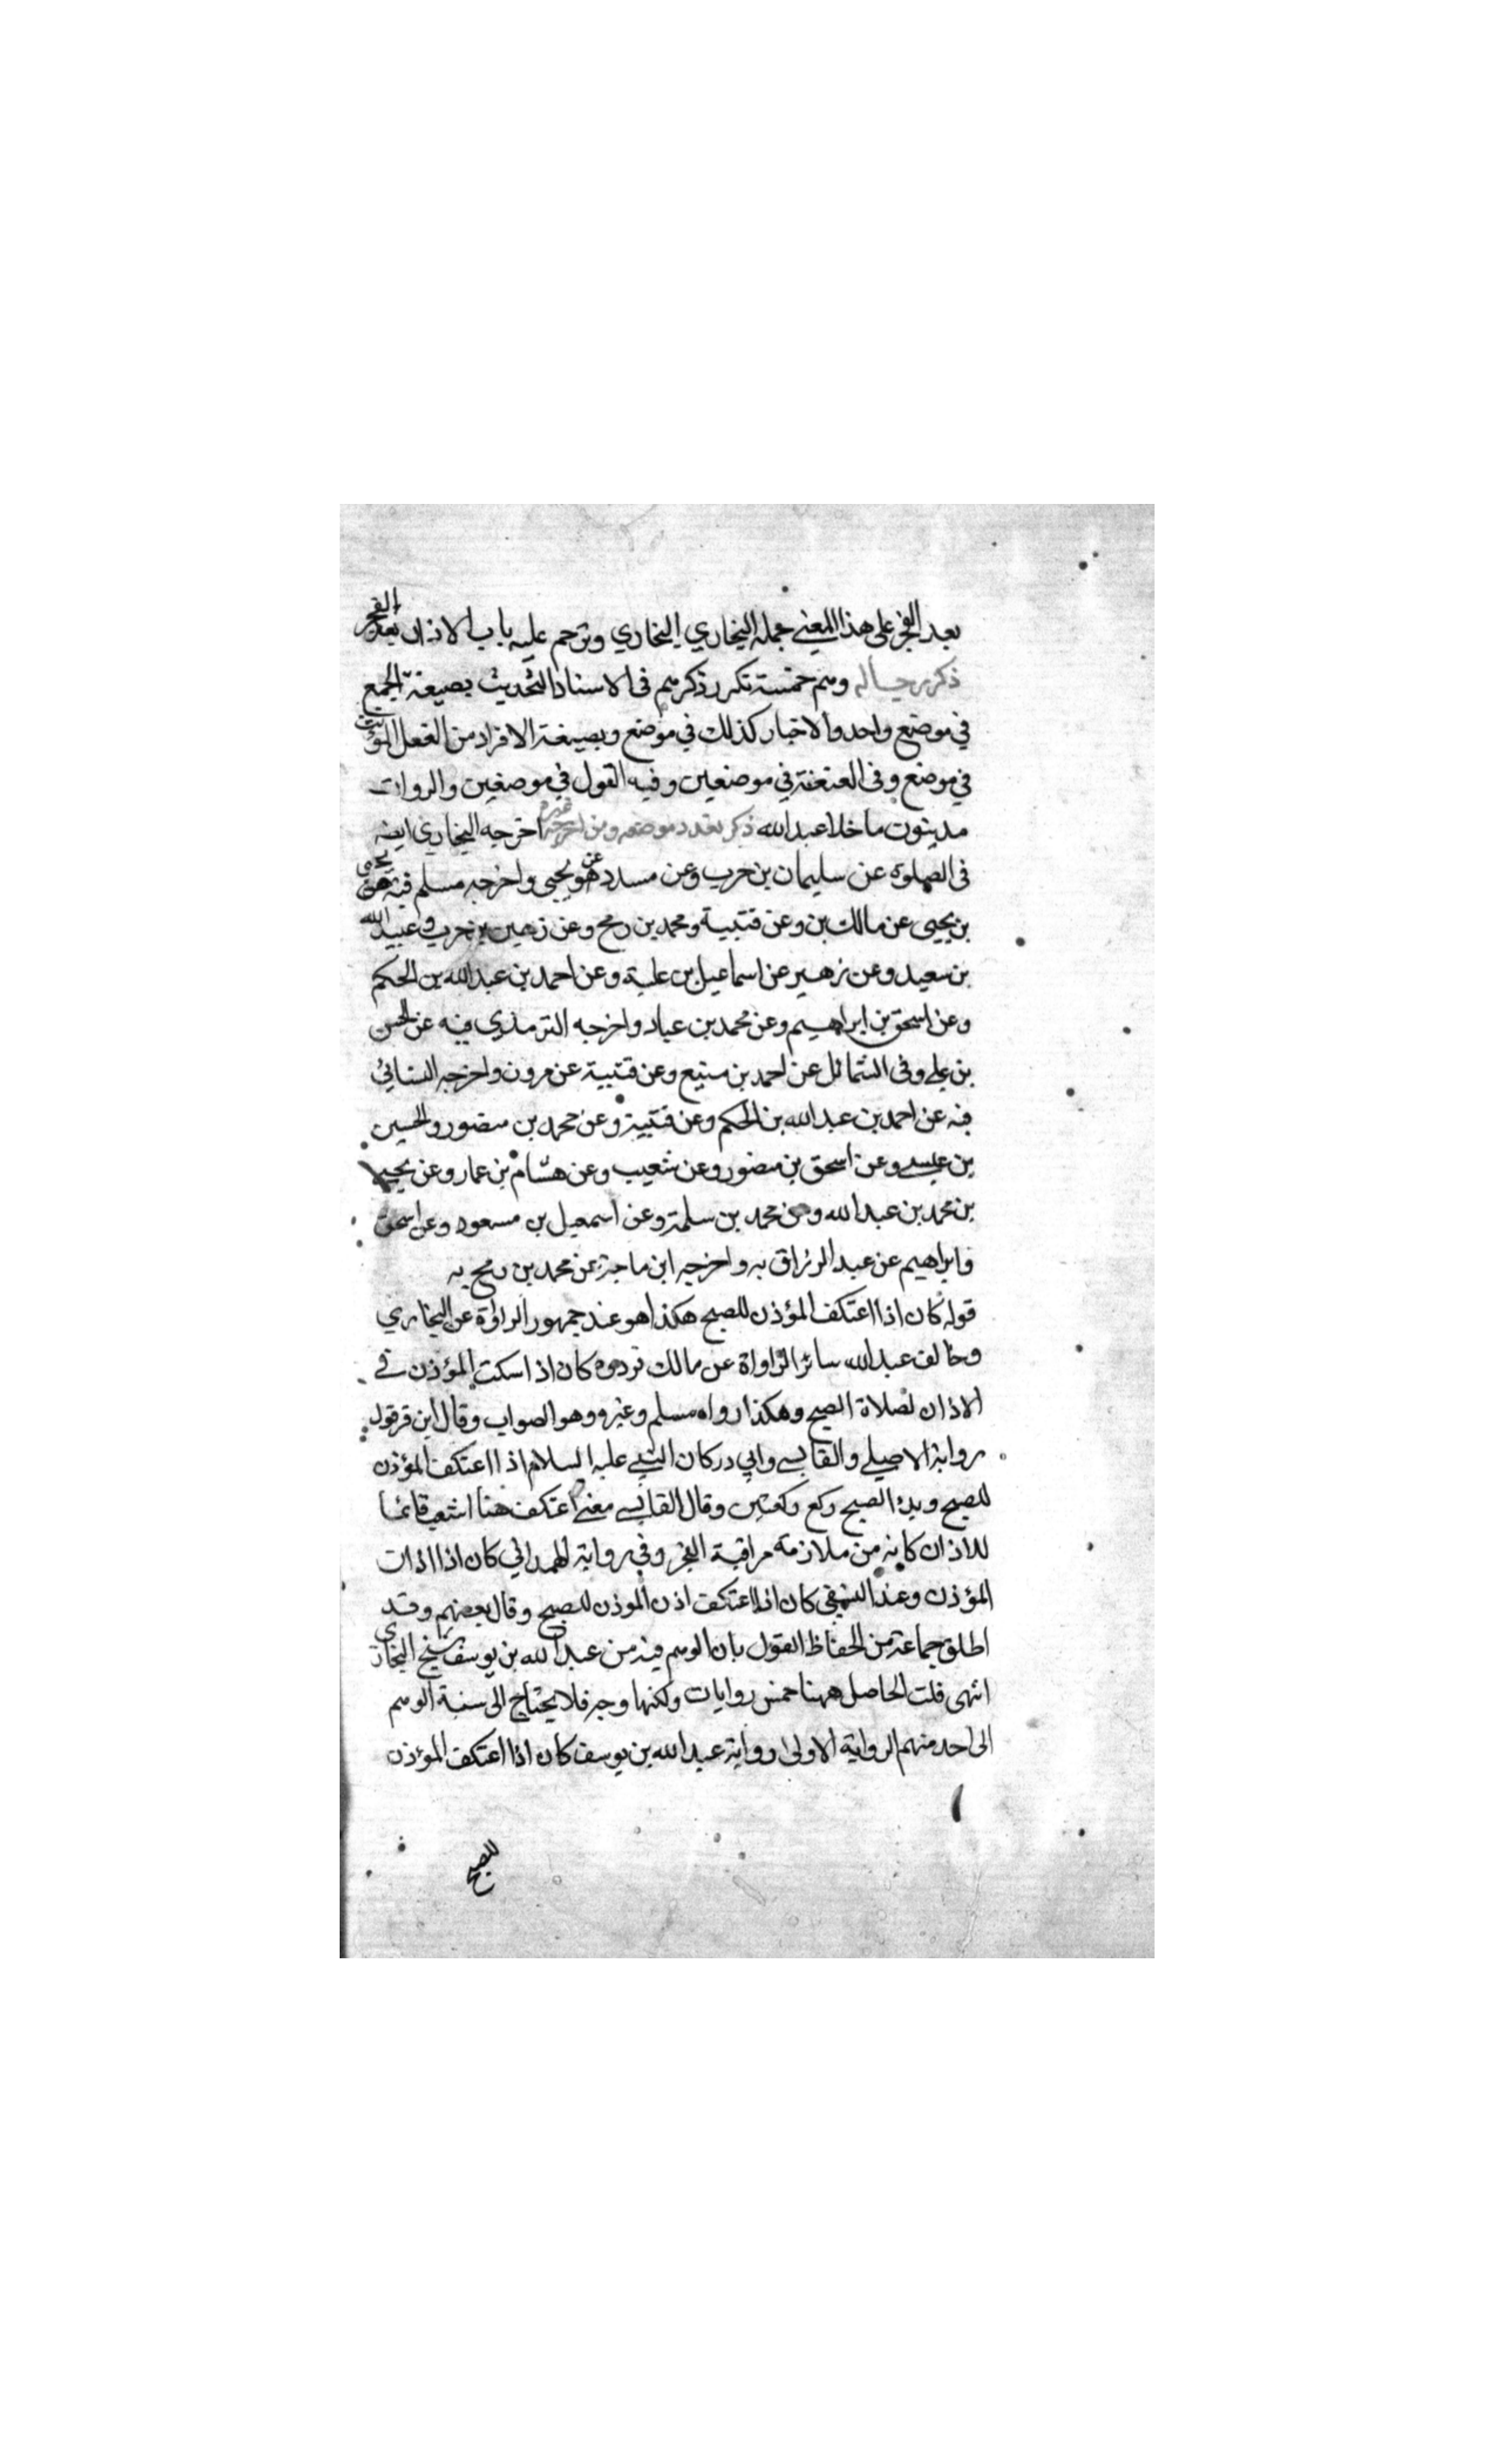 بعد الفجر على هذا المعنى حمله البخاري البخاري وترجم عليه باب الاذان بعد الفجر
ذكر رجاله وهم خمسة تكرر ذكرهم في الاسناد التحديث بصيغة الجمع
في موضع واحد والاخبار كذلك في موضع وبصيغة الافراد من الفعل المؤنث
في موضع وفى العنعنة في موضعين وفيه القول في موضعين والروات
مدينون ما خلا عبد الله ذكر تعدد موضعه ومن اخرجه غيره اخرجه البخاري ايضه
فى الصلوة عن سليمان بن حرب وعن مسدد عن يحيى واخرجه مسلم فيه عن يحيى
بن يحيى عن مالك بن وعن قتيبة ومحمد بن رمح وعن زهير بن حرب وعبيد الله
بن سعيد وعن زهير عن اسماعيل بن علية وعن احمد بن عبد الله بن الحكم
وعن اسحق بن ابراهيم وعن محمد بن عباد واخرجه الترمذي فيه عن الحسن
بن علي وفى الشمائل عن احمد بن منيع وعن قتيبة عن مرون واخرجه النسائي
فيه عن احمد بن عبد الله بن الحكم وعن قتيبة وعن محمد بن منصور والحسين
بن عيسى وعن اسحق بن منصور وعن شعيب وعن هشام بن عمار وعن يحيى
بن محمد بن عبد الله وعن محمد بن سلمة وعن اسمعيل بن مسعود وعن اسحق
وابراهيم عن عبد الرزاق به واخرجه ابن ماجة عن محمد بن رمح به
قوله كان اذا اعتكف المؤذن للصبح هكذا هو عند جمهور الراواة عن البخاري
وخالف عبد الله سائر الراواة عن مالك فردوه كان اذا سكت المؤذن في
الاذان لصلاة الصبح وهكذا رواه مسلم وغيره وهو الصواب وقال ابن قرقول
رواية الاصيلي والقابسي وابي در كان النبي عليه السلام اذا اعتكف المؤذن
للصبح وبدا الصبح ركع ركعتين وقال القابسي معنى اعتكف هنا انتصب قائما
للاذان كانه من ملازمة مراقبة الفجر وفي رواية الهمداني كان اذا اذن
المؤذن وعند النسفي كان اذا اعتكف اذن الموذن للصبح وقال بعضهم وقد
اطلق جماعة من الحفاظ القول بان الوهم فيه من عبد الله بن يوسف شيخ البخاري
انتهى قلت الحاصل ههنا خمس روايات ولكنها وجه فلا يحتاج الى سنبة الوهم
الى احد منهم الرواية الاولى رواية عبد الله بن يوسف كان اذا اعتكف المؤذن
للصبح